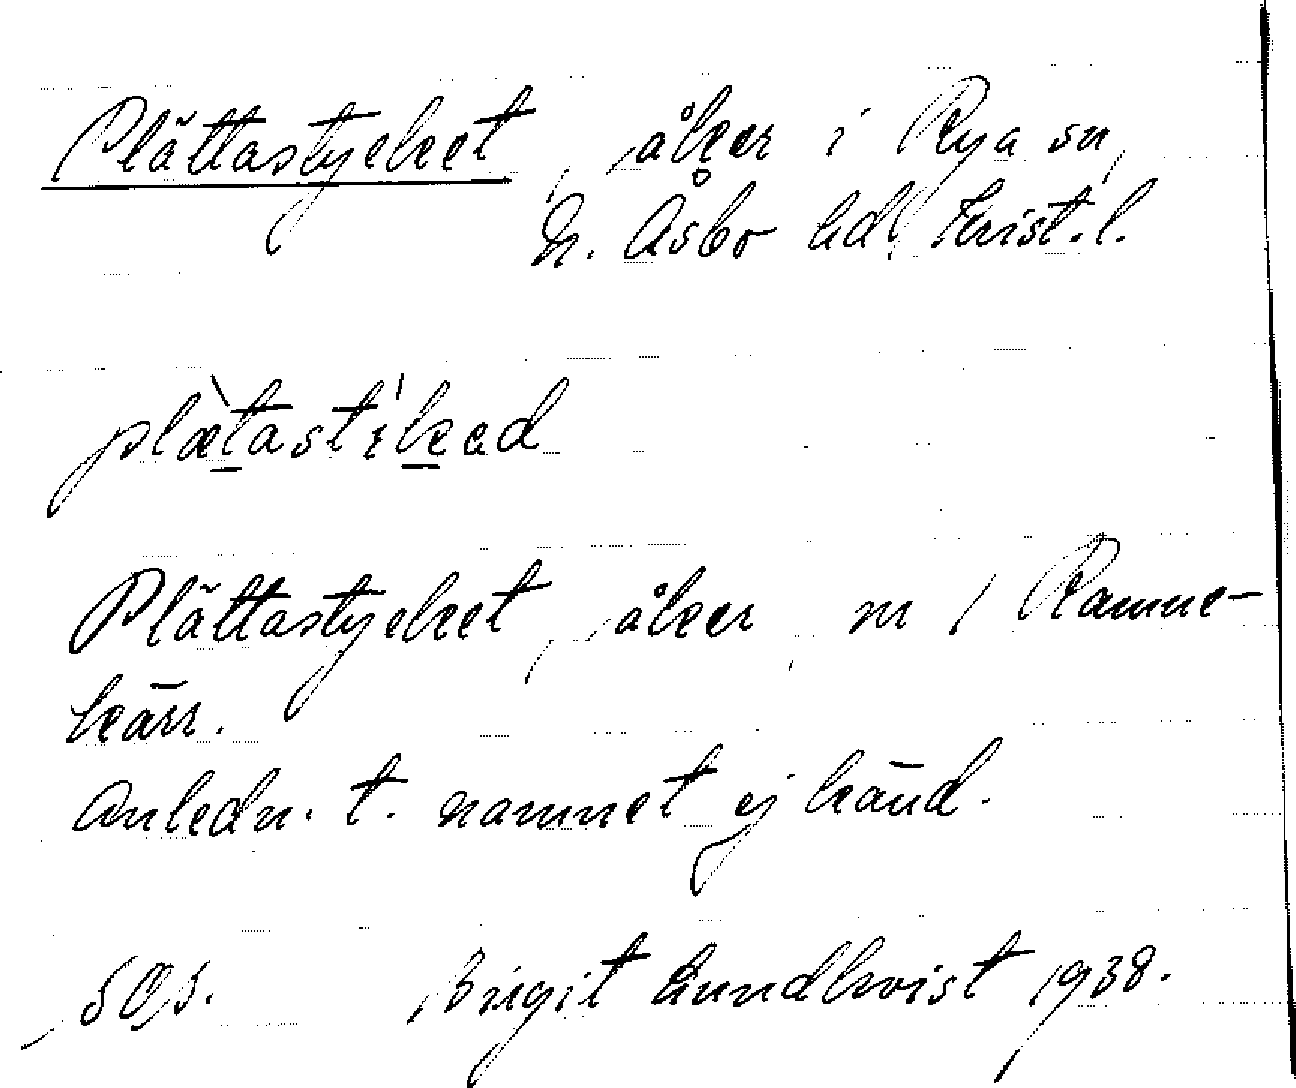 Plättastycket, åker i Rya sn,
N. Åsbo hd, Krist. l.
plætastikəd
Plättastycket, åker m / Ramne-
kärr.
Anledn. t. namnet ej känd.
Birgit Lundkvist 1938.